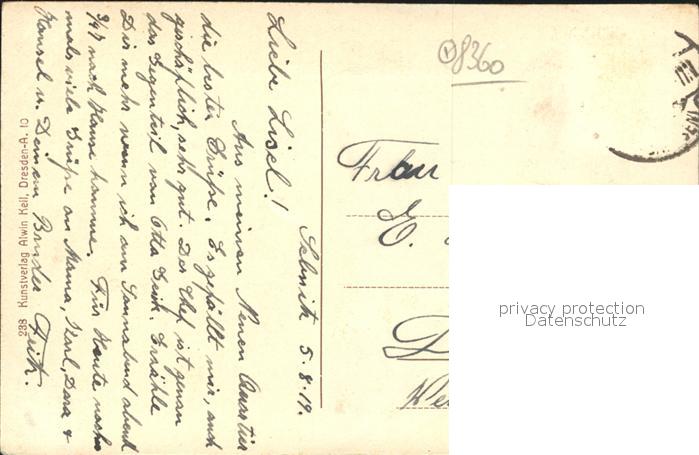 Sebnitz 5.8.19.
Liebe Lisel!
Aus meinem Neuen Quartier
die besten Grüße. Es gefällt mir, auch
geschäftlich, sehr gut. Der Chef ist genau
das Gegenteil von Otto Geith. Erzähle
Dir mehr wenn ich am Sonnabend abend
nach Hause komme. Für Heute noch
mals viele Grüße an Mama, Karl, Dora &
Hansel u. Deinem Bruder Fritz.
238 Kunstverlag Alwin Keil, Dresden-A. 10
8360
Frau
E.
D
We
privacy protection
Datenschutz